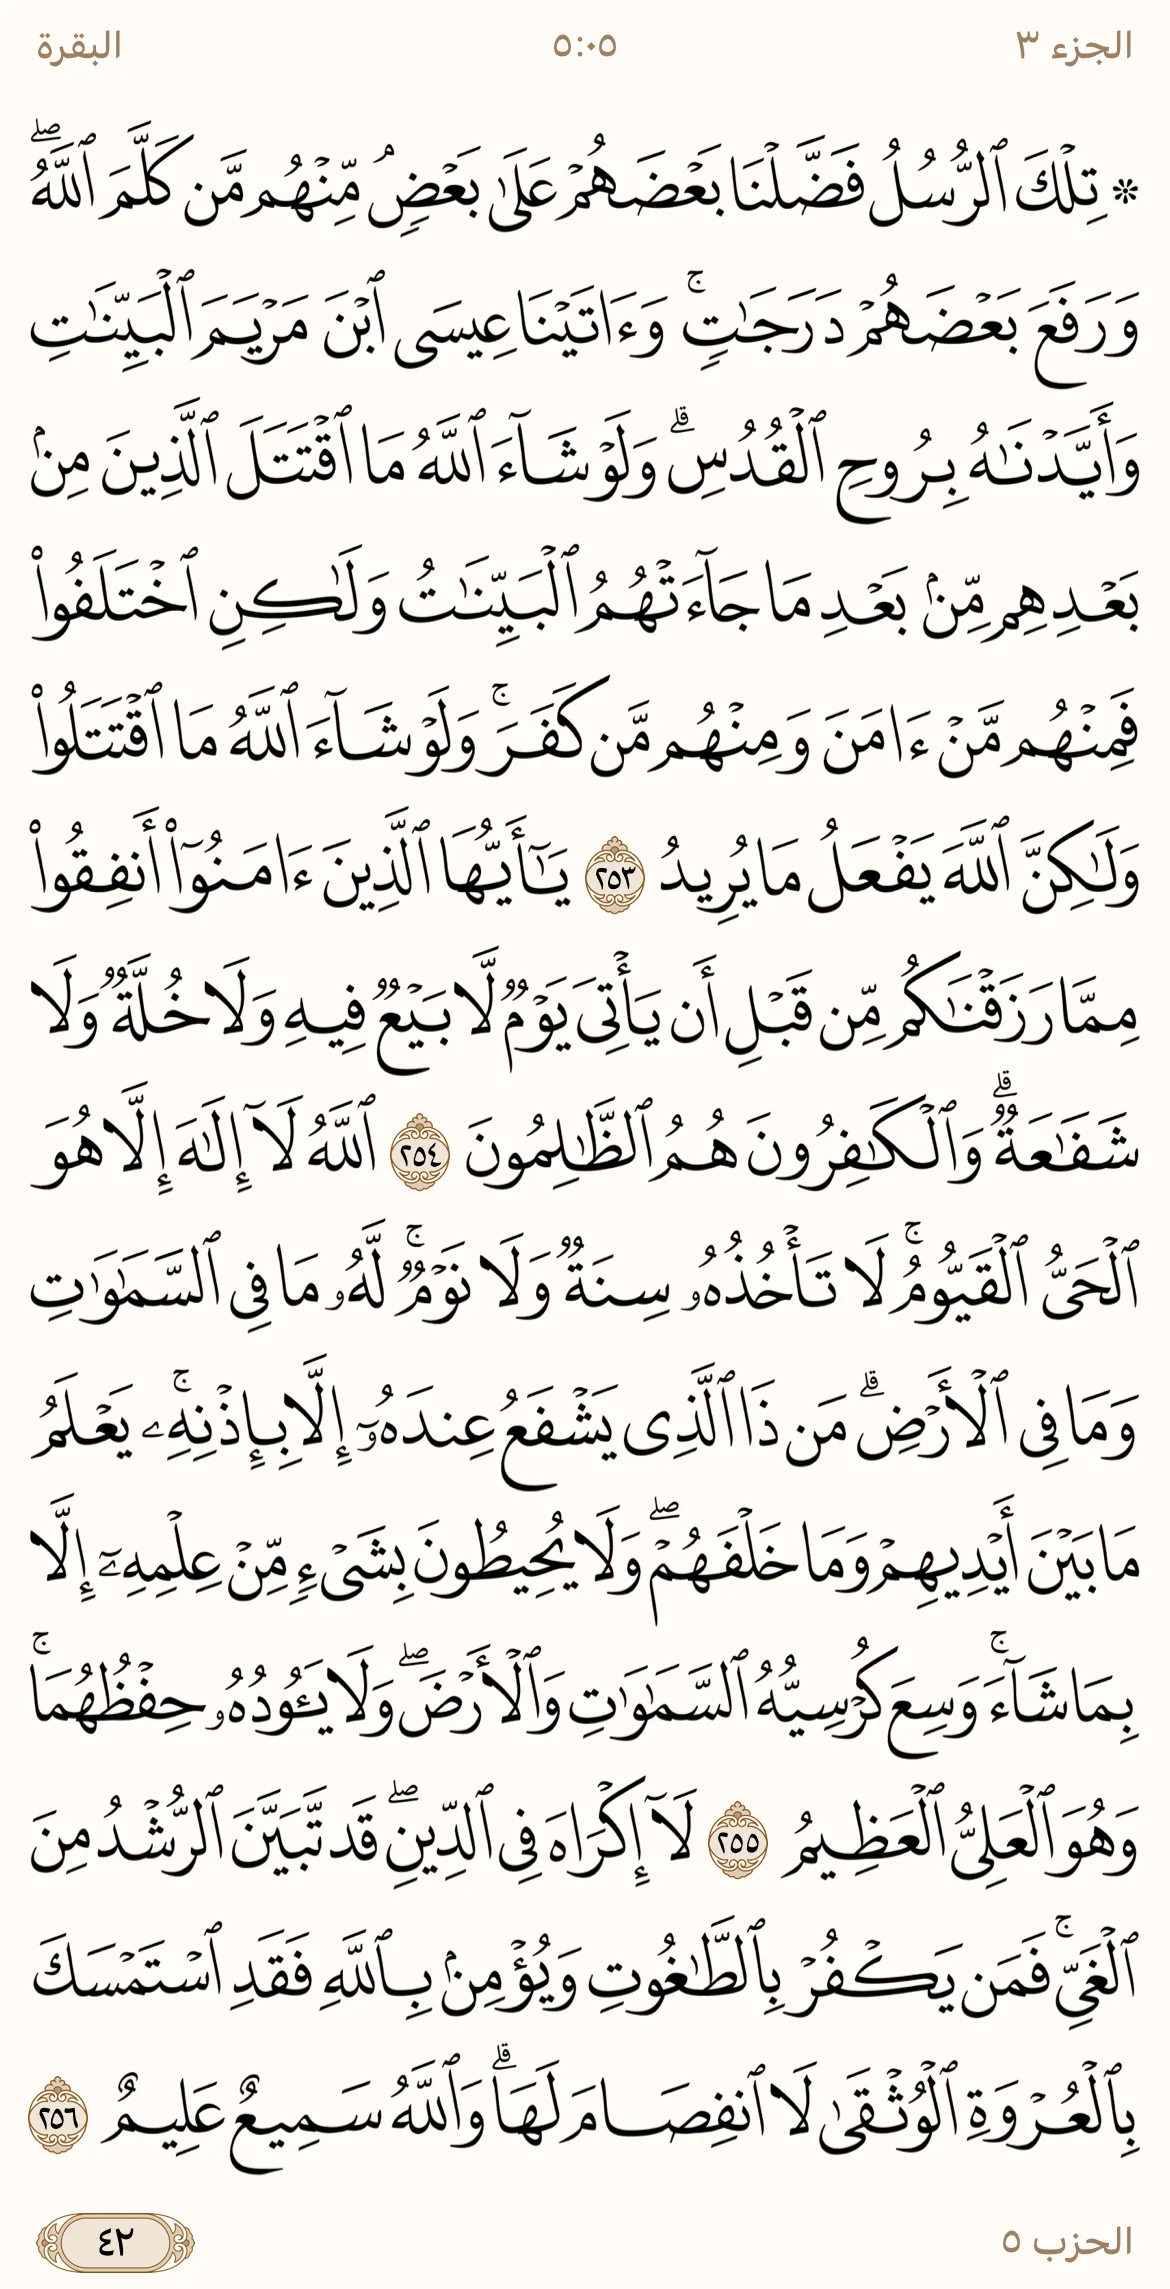 الجزء ٣
٥:٠٥
البقرة
۞ تِلْكَ ٱلرُّسُلُ فَضَّلْنَا بَعْضَهُمْ عَلَىٰ بَعْضٍۢ ۘ مِّنْهُم مَّن كَلَّمَ ٱللَّهُ ۖ
وَرَفَعَ بَعْضَهُمْ دَرَجَـٰتٍۢ ۚ وَءَاتَيْنَا عِيسَى ٱبْنَ مَرْيَمَ ٱلْبَيِّنَـٰتِ
وَأَيَّدْنَـٰهُ بِرُوحِ ٱلْقُدُسِ ۗ وَلَوْ شَآءَ ٱللَّهُ مَا ٱقْتَتَلَ ٱلَّذِينَ مِنۢ
بَعْدِهِم مِّنۢ بَعْدِ مَا جَآءَتْهُمُ ٱلْبَيِّنَـٰتُ وَلَـٰكِنِ ٱخْتَلَفُوا۟
فَمِنْهُم مَّنْ ءَامَنَ وَمِنْهُم مَّن كَفَرَ ۚ وَلَوْ شَآءَ ٱللَّهُ مَا ٱقْتَتَلُوا۟
وَلَـٰكِنَّ ٱللَّهَ يَفْعَلُ مَا يُرِيدُ ٢٥٣ يَـٰٓأَيُّهَا ٱلَّذِينَ ءَامَنُوٓا۟ أَنفِقُوا۟
مِمَّا رَزَقْنَـٰكُم مِّن قَبْلِ أَن يَأْتِىَ يَوْمٌۭ لَّا بَيْعٌۭ فِيهِ وَلَا خُلَّةٌۭ وَلَا
شَفَـٰعَةٌۭ ۗ وَٱلْكَـٰفِرُونَ هُمُ ٱلظَّـٰلِمُونَ ٢٥٤ ٱللَّهُ لَآ إِلَـٰهَ إِلَّا هُوَ
ٱلْحَىُّ ٱلْقَيُّومُ ۚ لَا تَأْخُذُهُۥ سِنَةٌۭ وَلَا نَوْمٌۭ ۚ لَّهُۥ مَا فِى ٱلسَّمَـٰوَٰتِ
وَمَا فِى ٱلْأَرْضِ ۗ مَن ذَا ٱلَّذِى يَشْفَعُ عِندَهُۥٓ إِلَّا بِإِذْنِهِۦ ۚ يَعْلَمُ
مَا بَيْنَ أَيْدِيهِمْ وَمَا خَلْفَهُمْ ۖ وَلَا يُحِيطُونَ بِشَىْءٍۢ مِّنْ عِلْمِهِۦٓ إِلَّا
بِمَا شَآءَ ۚ وَسِعَ كُرْسِيُّهُ ٱلسَّمَـٰوَٰتِ وَٱلْأَرْضَ ۖ وَلَا يَـُٔودُهُۥ حِفْظُهُمَا ۚ
وَهُوَ ٱلْعَلِىُّ ٱلْعَظِيمُ ٢٥٥ لَآ إِكْرَاهَ فِى ٱلدِّينِ ۖ قَد تَّبَيَّنَ ٱلرُّشْدُ مِنَ
ٱلْغَىِّ ۚ فَمَن يَكْفُرْ بِٱلطَّـٰغُوتِ وَيُؤْمِنۢ بِٱللَّهِ فَقَدِ ٱسْتَمْسَكَ
بِٱلْعُرْوَةِ ٱلْوُثْقَىٰ لَا ٱنفِصَامَ لَهَا ۗ وَٱللَّهُ سَمِيعٌ عَلِيمٌ ٢٥٦
الحزب ٥
٤٢